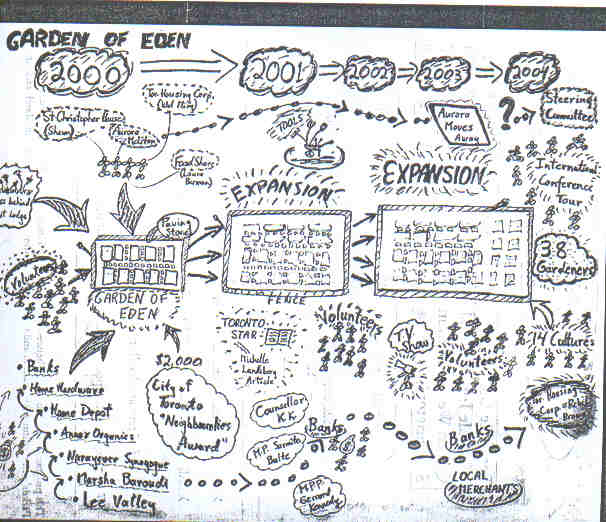 GARDEN OF EDEN
2000
2001
2002
2003
2004
Tor Housing Corp.
St. Christopher House
(Shawn)
Aurora
Food Share
(Laura
Berman)
TOOLS
Aurora
Moves
Away
?
Steering
Committee
International
Conference
Tour
EXPANSION
EXPANSION
behind
lodge
Paving
Stone
38
Gardeners
Volunteers
GARDEN OF
EDEN
FENCE
TORONTO
STAR
Michelle
Landsberg
Article
Volunteers
TV
Show
Volunteers
14 Cultures
Tor Housing
Corp.
$2,000
City of
Toronto
"Neighbourhoods
Award"
• Banks
• Home Hardware
• Home Depot
• Annex Organics
• Narayever Synagogue
• Marsha Baroudi
• Lee Valley
Councillor
K.K.
M.P. Sarmite
Bulte
MPP
Gerard
Kennedy
Banks
$
Banks
LOCAL
MERCHANTS